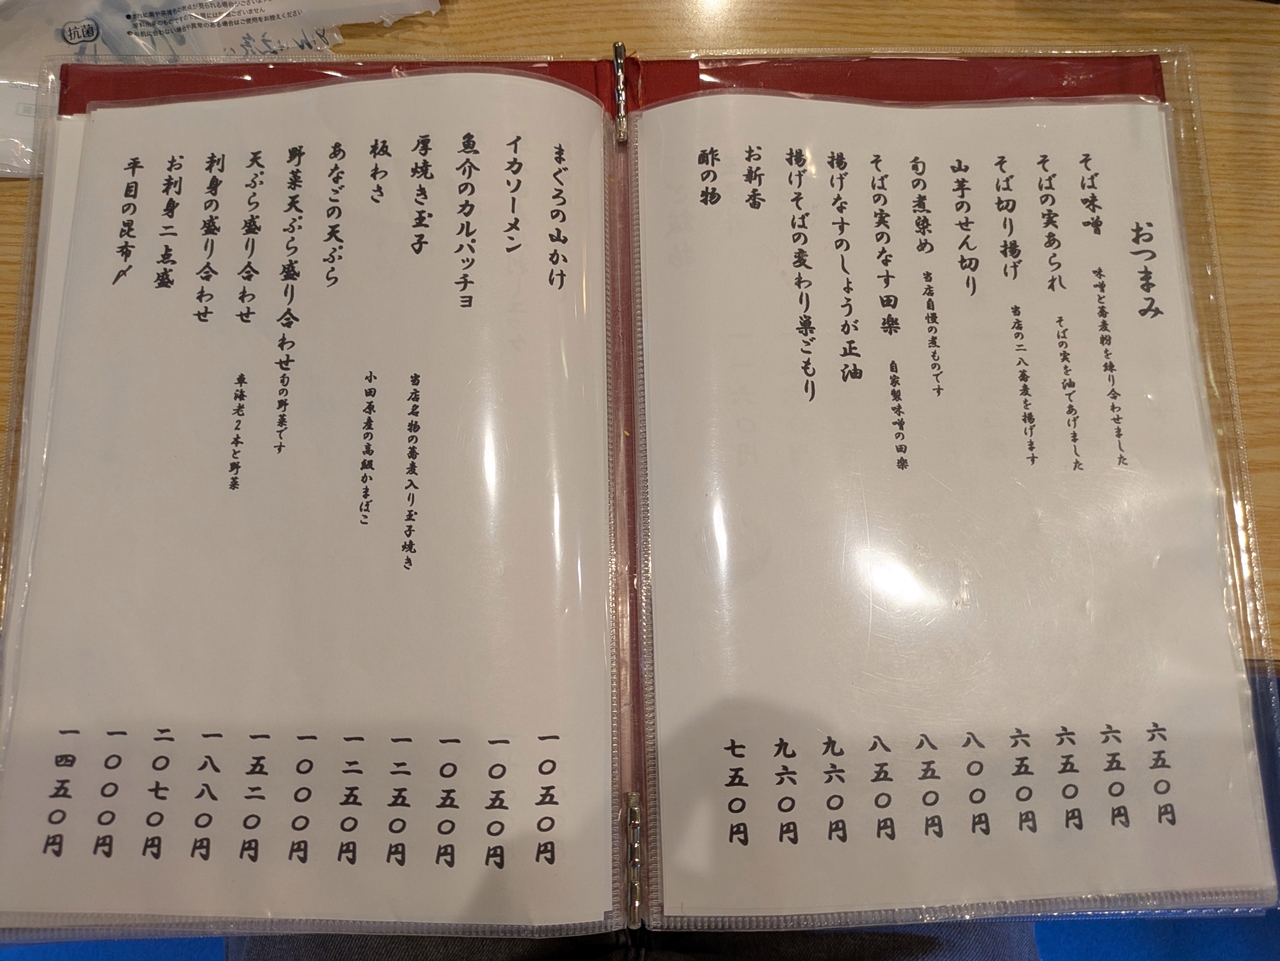 おつまみ
そば味噌 味噌と蕎麦粉を練り合わせました 六五〇円
そばの実あられ そばの実を油であげました 六五〇円
そば切り揚げ 当店の二八蕎麦を揚げます 六五〇円
山芋のせん切り 六五〇円
旬の煮染め 当店自慢の煮ものです 八〇〇円
そばの実のなす田楽 自家製味噌の田楽 八五〇円
揚げなすのしょうが正油 八五〇円
揚げそばの変わり巣ごもり 九六〇円
お新香 九六〇円
酢の物 七五〇円
まぐろの山かけ 一〇五〇円
イカソーメン 一〇五〇円
魚介のカルパッチョ 一〇五〇円
厚焼き玉子 当店名物の蕎麦入り玉子焼き 一二五〇円
板わさ 小田原産の高級かまぼこ 一二五〇円
あなごの天ぷら 一〇〇〇円
野菜天ぷら盛り合わせ 旬の野菜です 一五二〇円
天ぷら盛り合わせ 車海老2本と野菜 一八八〇円
刺身の盛り合わせ 二〇七〇円
お刺身二点盛 一〇〇〇円
平目の昆布〆 一四五〇円
抗菌